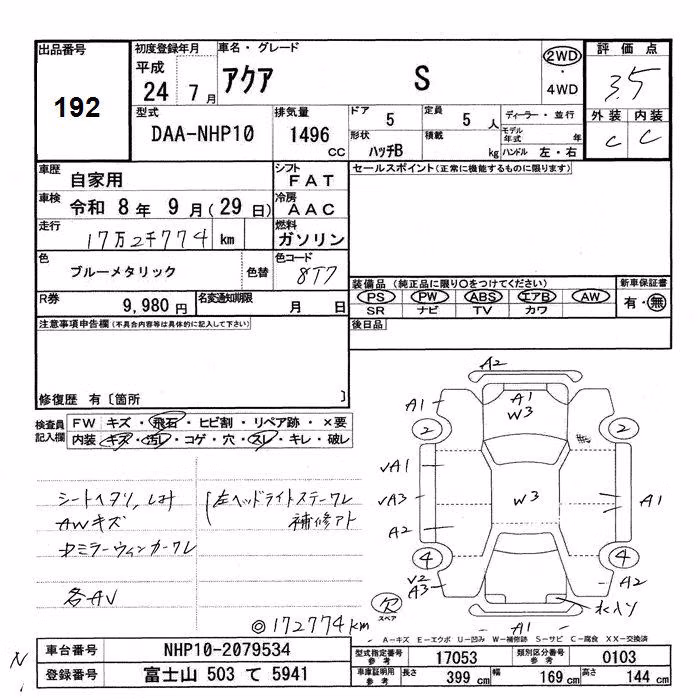 出品番号 初度登録年月 車名・グレード 評価点
192
平成 24 7月 アクア S 2WD・4WD 3.5
型式 排気量 ドア 5 定員 5人 ディーラー・並行 外装 内装
DAA-NHP10 1496 CC 形状 ハッチB 積載 kg モデル年式 年 ハンドル 左・右 C C
車歴 自家用 シフト FAT セールスポイント(正常に機能するものに限ります)
車検 令和 8年 9月(29日) 冷房 AAC
走行 17万2千774 km 燃料 ガソリン
色 ブルーメタリック 色替 色コード 8T7
装備品(純正品に限り○をつけてください) 新車保証書
PS PW ABS エアB AW 有・無
SR ナビ TV カワ
R券 9,980円 名変通知期限 月 日
注意事項申告欄(不具合内容等は具体的に記入して下さい) 後日品
修復歴 有〔箇所 〕
検査員記入欄 FW キズ・飛石・ヒビ割・リペア跡・×要
内装 キズ・汚レ・コゲ・穴・スレ・キレ・破レ
シートヘタリ,しみ 左ヘッドライトステーワレ
AWキズ 補修アト
中ミラーウィンカーワレ
各AV
◎172774km
A2
A1 A1
W3
2 2
√A1
√A3 W3 A1
A2
4 4
V2 A2
A3
欠 スペア 水入り
A1
A-キズ E-エクボ U-凹み W-補修跡 S-サビ C-腐食 XX-交換済
N
車台番号 NHP10-2079534 型式指定番号 参考 17053 類別区分番号 参考 0103
登録番号 富士山 503 て 5941 車庫証明用 参考 長さ 399 cm 幅 169 cm 高さ 144 cm